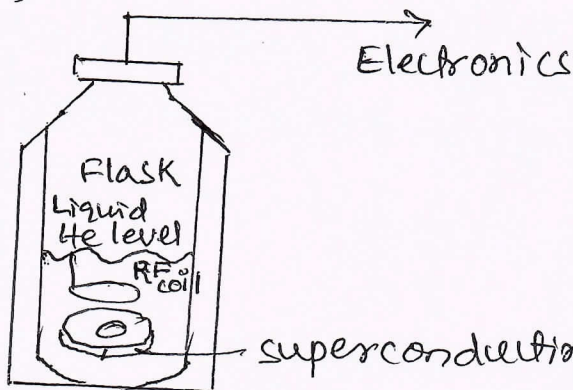 Electronics
Flask
Liquid
He level
RF
coil
superconductin